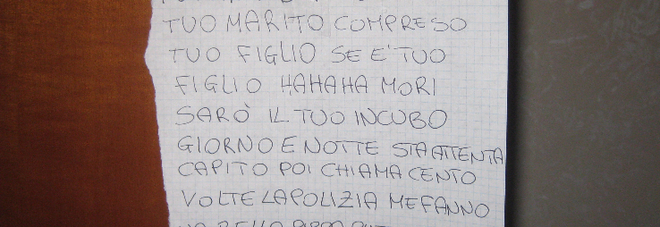 TUO MARITO COMPRESO
TUO FIGLIO SE E' TUO
FIGLIO HAHAHA MORI
SARÒ IL TUO INCUBO
GIORNO E NOTTE STAI ATTENTA
CAPITO POI CHIAMA CENTO
VOLTE LA POLIZIA ME FANNO